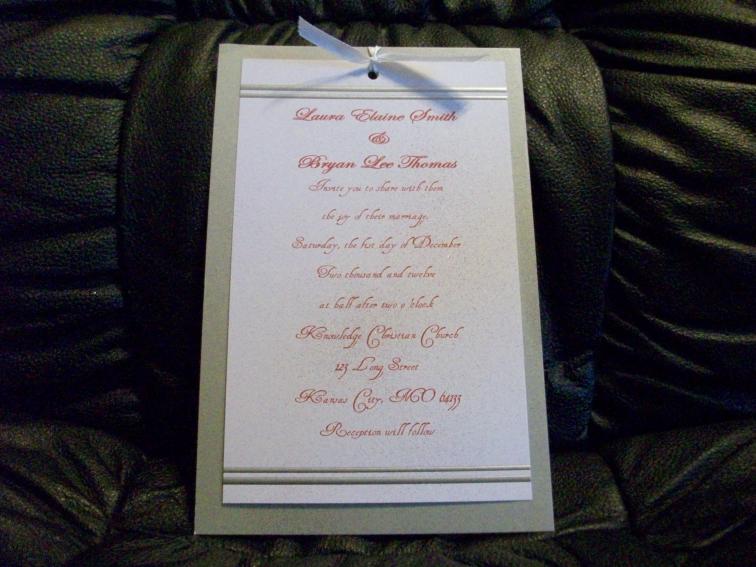 Laura Elaine Smith
&
Bryan Lee Thomas
Invite you to share with them
the joy of their marriage.
Saturday, the 1st day of December
Two thousand and twelve
at half after two o'clock
Knowledge Christian Church
123 Long Street
Kansas City, MO 64133
Reception will follow